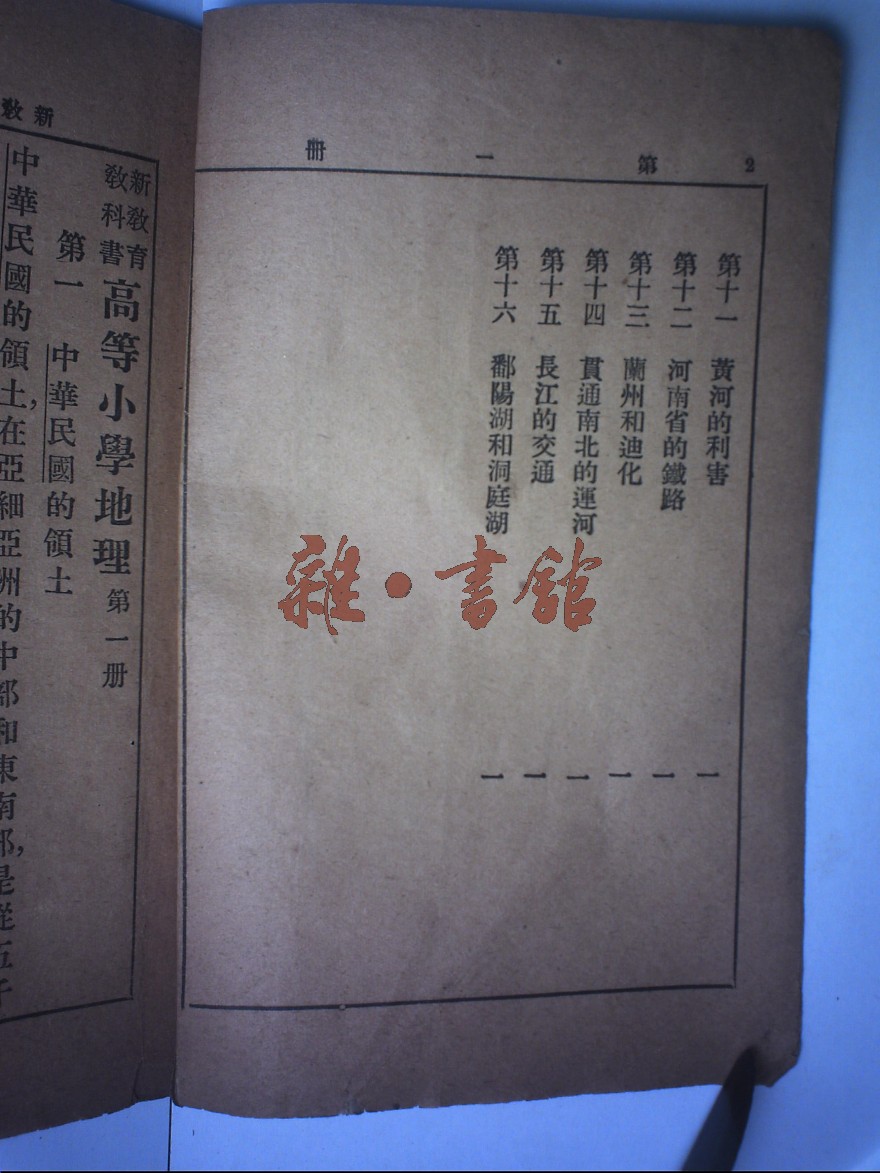 2 第一册
第十一 黃河的利害 一
第十二 河南省的鐵路 一
第十三 蘭州和迪化 一
第十四 貫通南北的運河 一
第十五 長江的交通 一
第十六 鄱陽湖和洞庭湖 一
雜·書館
新敎
新敎育敎科書 高等小學地理 第一册
第一 中華民國的領土
中華民國的領土,在亞細亞洲的中部和東南部,是從五千